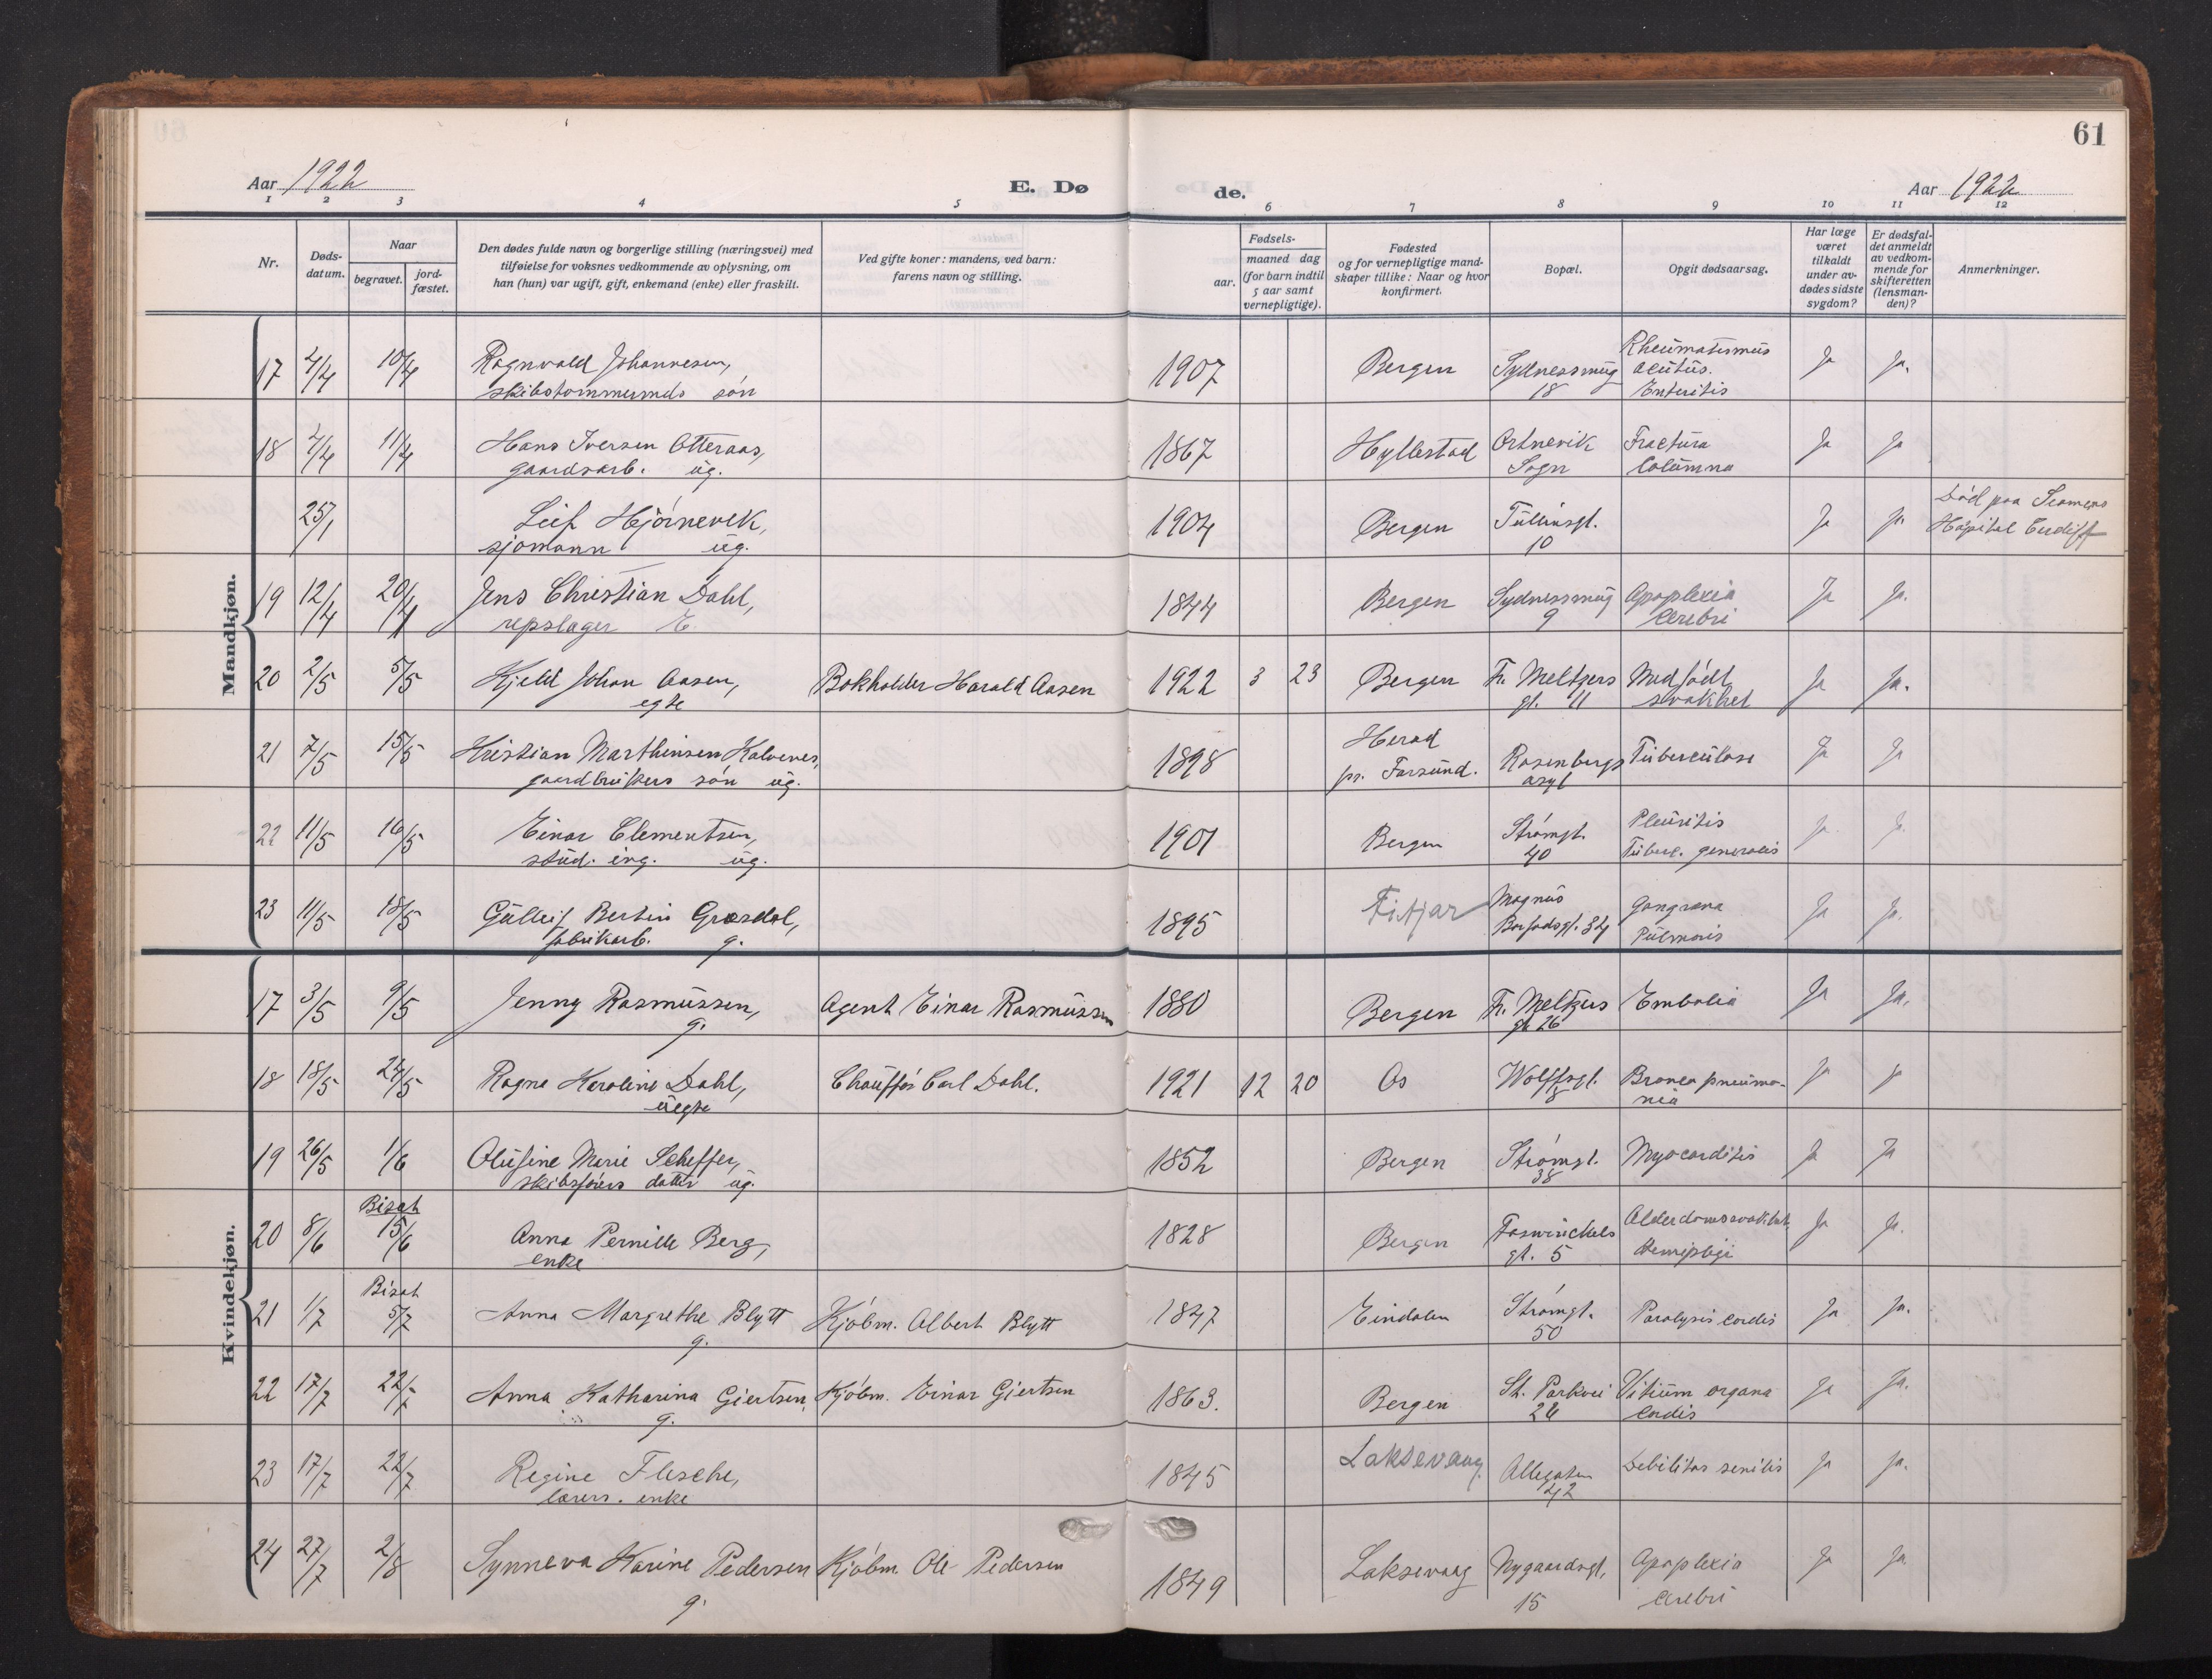 61
Aar 1922
E. Dø
de.
Aar 1922
1 2 3 4 5 6 7 8 9 10 11 12
Nr.
Døds-
datum.
Naar
begravet.
jord-
fæstet.
Den dødes fulde navn og borgerlige stilling (næringsvei) med
tilføielse for voksnes vedkommende av oplysning, om
han (hun) var ugift, gift, enkemand (enke) eller fraskilt.
Ved gifte koner: mandens, ved barn:
farens navn og stilling.
Fødsels-
aar.
maaned dag
(for barn indtil
5 aar samt
vernepligtige).
Fødested
og for vernepligtige mand-
skaper tillike: Naar og hvor
konfirmert.
Bopæl.
Opgit dødsaarsag.
Har læge
været
tilkaldt
under av-
dødes sidste
sygdom?
Er dødsfal-
det anmeldt
av vedkom-
mende for
skifteretten
(lensman-
den)?
Anmerkninger.
Mandkjøn.
17 4/4 10/4 Ragnvald Johannesen, 1907 Bergen Sydnessmug Rheumatismus Ja Ja.
skibstømmermds søn 18 acutus.
Enteritis
18 4/4 11/4 Hans Iversen Otteraas, 1867 Hyllestad Ortnevik Fractura Ja Ja
gaardsarb. ug. Sogn Columna
25/1 Leif Hjørnevik, 1904 Bergen Tullinsgt. Ja Ja Død paa Seamens
sjømann ug. 10 Hospital Cardiff
19 12/4 20/4 Jens Christian Dahl, 1844 Bergen Sydnessmug Apoplexia Ja Ja.
repslager E. 9 Cerebri
20 2/5 5/5 Kjeld Johan Aasen, Bokholder Harald Aasen 1922 3 23 Bergen Fr. Meltzers Medfødt Ja Ja.
egte gt. 11 svakhet
21 7/5 15/5 Kristian Marthinsen Kalvenes, 1898 Herad Rosenbergs Tuberculose Ja Ja
gaardbrukers søn ug. pr. Farsund. asyl
22 11/5 16/5 Einar Clementsen, 1901 Bergen Strømgt. Pleuritis Ja Ja
stud. ing. ug. 40 Tuberc. generalis
23 11/5 18/5 Gulleif Bertin Græsdal, 1895 Fitjar Magnus Gangræna Ja Ja.
fabrikarb. g. Barfodsgt. 34 Pulmonis
Kvindekjøn.
17 3/5 9/5 Jenny Rasmussen, Agent Einar Rasmussen 1880 Bergen Fr. Meltzers Embolia Ja Ja.
g. gt 26
18 18/5 24/5 Ragna Karoline Dahl, Chauffør Carl Dahl. 1921 12 20 Os Wolffsgt. Broncopneumo- Ja Ja
uegte 8 nia
19 26/5 1/6 Olufine Marie Scheffer, 1852 Bergen Strømgt. Myocarditis Ja Ja
skibsførers datter ug. 38
Bisat
20 8/6 15/6 Anna Pernille Berg, 1828 Bergen Foswinckels Alderdomssvakhet Ja Ja.
enke gt. 5 Hemiplegi
Bisat
21 1/7 5/7 Anna Margrethe Blytt Kjøbm. Albert Blytt 1847 Eindalen Strømgt. Paralysis cordis Ja Ja.
g. 50
22 17/7 22/7 Anna Katharina Giertsen, Kjøbm. Einar Giertsen 1863. Bergen St. Parkvei Vitium organa Ja Ja.
g. 26 Cordis
23 17/7 22/7 Regine Flesche, 1845 Laksevaag. Allegaten Debilitas senilis Ja Ja.
lærers. enke 42
24 27/7 2/8 Synneva Karine Pedersen Kjøbm. Ole Pedersen 1849 Laksevaag Nygaardsgt. Apoplexia Ja Ja
g. 15 Cerebri